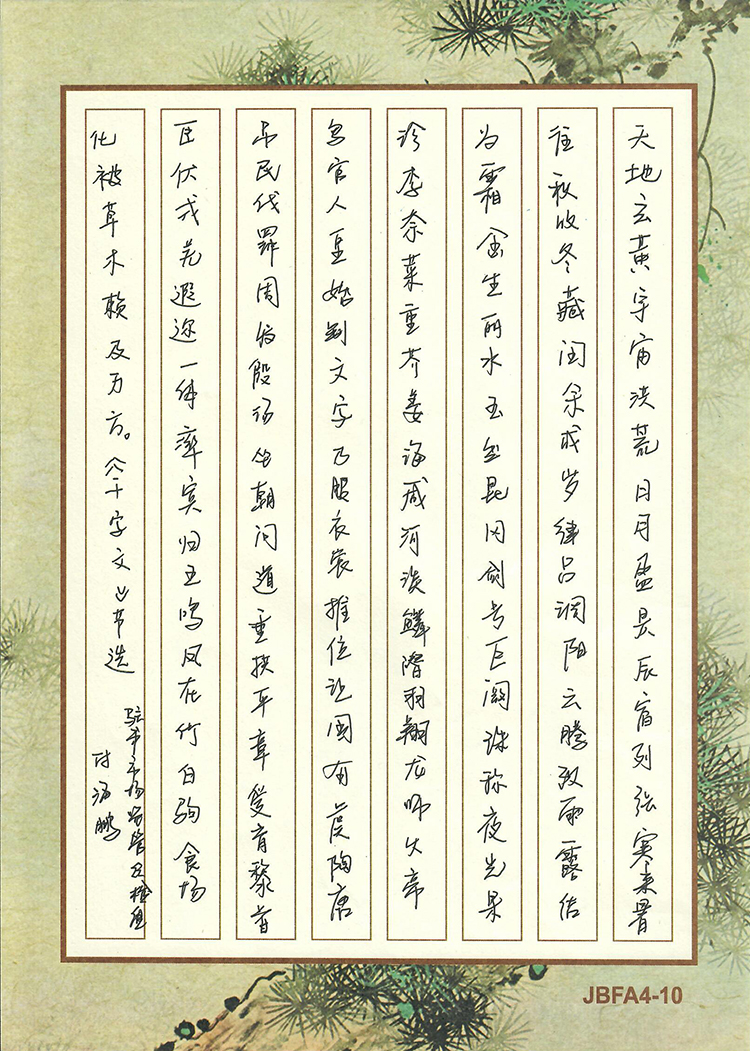 天地玄黄宇宙洪荒日月盈昃辰宿列张寒来暑
往秋收冬藏闰余成岁律吕调阳云腾致雨露结
为霜金生丽水玉出昆冈剑号巨阙珠称夜光果
珍李柰菜重芥姜海咸河淡鳞潜羽翔龙师火帝
鸟官人皇始制文字乃服衣裳推位让国有虞陶唐
吊民伐罪周发殷汤坐朝问道垂拱平章爱育黎首
臣伏戎羌遐迩一体率宾归王鸣凤在竹白驹食场
化被草木赖及万方。《千字文》节选
市市场监管
付海鹏
JBFA4-10